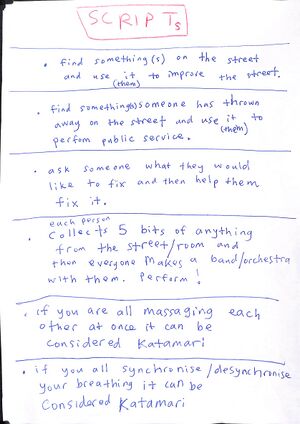 SCRIPTs
• find something(s) on the street
and use it to improve the street.
(them)
• find something(s) someone has thrown
away on the street and use it to
(them)
perform public service.
• ask someone what they would
like to fix and then help them
fix it.
each person
• Collects 5 bits of anything
from the street/room and
then everyone makes a band/orchestra
with them. Perform!
• if you are all massaging each
other at once it can be
considered Katamari
• if you all synchronise/desynchronise
your breathing it can be
Considered Katamari